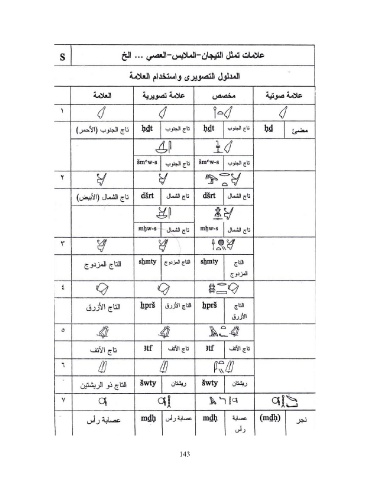 علامات تمثل التيجان-الملابس-العصي ... الخ S
المدلول التصويرى واستخدام العلامة
علامة صوتية مخصص علامة تصويرية العلامة
١
مضئ ḥḏ تاج الجنوب ḥḏt تاج الجنوب ḥḏt تاج الجنوب (الأحمر)
تاج الجنوب šmꜥw-s تاج الجنوب šmꜥw-s
٢
تاج الشمال dšrt تاج الشمال dšrt تاج الشمال (الأبيض)
تاج الشمال mḥw-s تاج الشمال mḥw-s
٣
التاج المزدوج sḫmty التاج المزدوج sḫmty التاج المزدوج
٤
التاج الأزرق ḫprš التاج الأزرق ḫprš التاج الأزرق
٥
تاج الأتف ꜣtf تاج الأتف ꜣtf تاج الأتف
٦
ريشتان šwty ريشتان šwty التاج ذو الريشتين
٧
نجر (mḏḥ) عصابة رأس mḏḥ عصابة رأس mḏḥ عصابة رأس
143